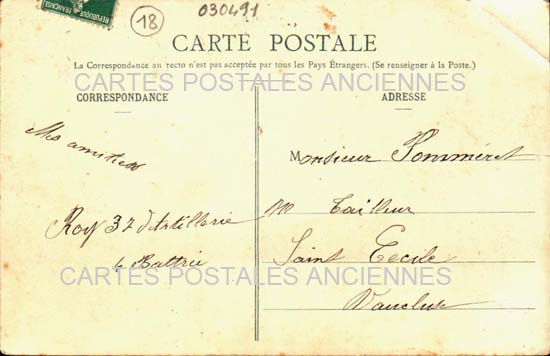 REPUBLIQUE FRANÇAISE
18
030491
CARTE POSTALE
La Correspondance au recto n'est pas acceptée par tous les Pays Étrangers. (Se renseigner à la Poste.)
CARTES POSTALES ANCIENNES
CORRESPONDANCE
Mes amitiés
Roy 32 d'Artillerie
4 Battrie
ADRESSE
Monsieur Pommeret
Tailleur
Saint Cecile
Vaucluse
CARTES POSTALES ANCIENNES